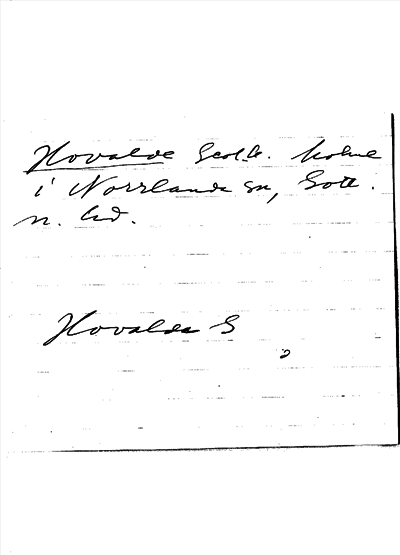 Hovalde Geol.k. holme
i Norrlanda sn, Gotl.
n. hd.
Hovalda G